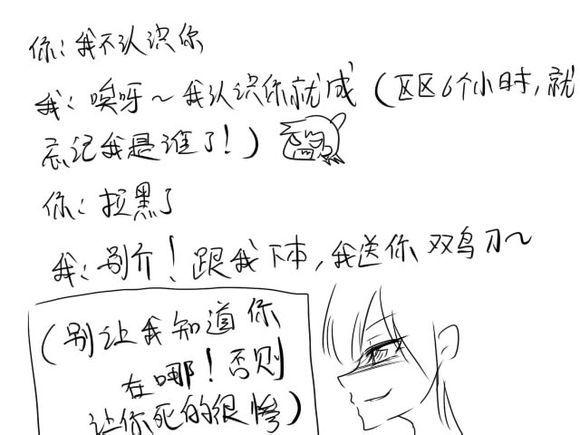 你:我不认识你
我:唉呀~我认识你就成(区区6个小时,就
忘记我是谁了!)
你:拉黑了
我:别介!跟我下本,我送你双鸟刀~
(别让我知道你
在哪!否则
让你死的很惨)